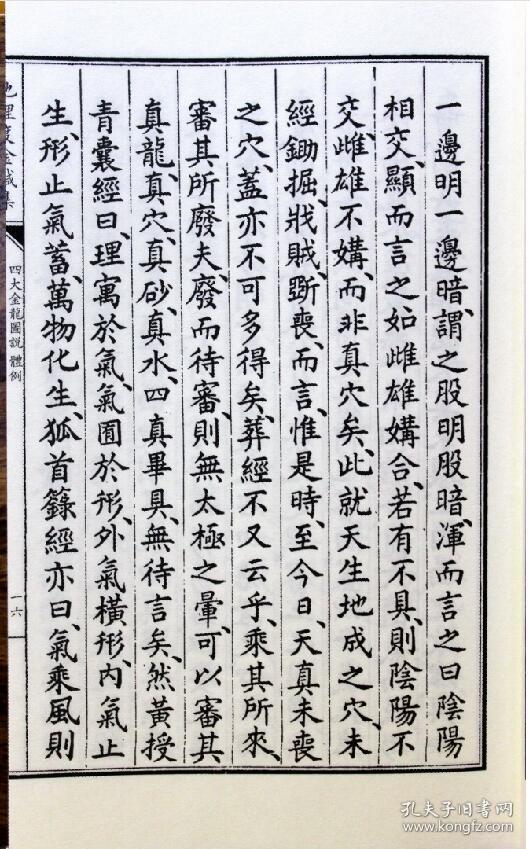 一邊明一邊暗、謂之股明股暗、渾而言之曰陰陽
相交、顯而言之如雌雄媾合、若有不具、則陰陽不
交、雌雄不媾、而非真穴矣、此就天生地成之穴、未
經鋤掘、戕賊、斵喪、而言、惟是時、至今日、天真未喪
之穴、蓋亦不可多得矣、葬經不又云乎、乘其所來、
審其所廢、夫廢而待審、則無太極之暈、可以審其
真龍、真穴、真砂、真水、四真畢具、無待言矣、然黃授
青囊經曰、理寓於氣、氣囿於形、外氣橫形、內氣止
生、形止氣蓄、萬物化生、狐首籙經亦曰、氣乘風則
四大金龍圖說 體例
一六
孔夫子旧书网
www.kongfz.com